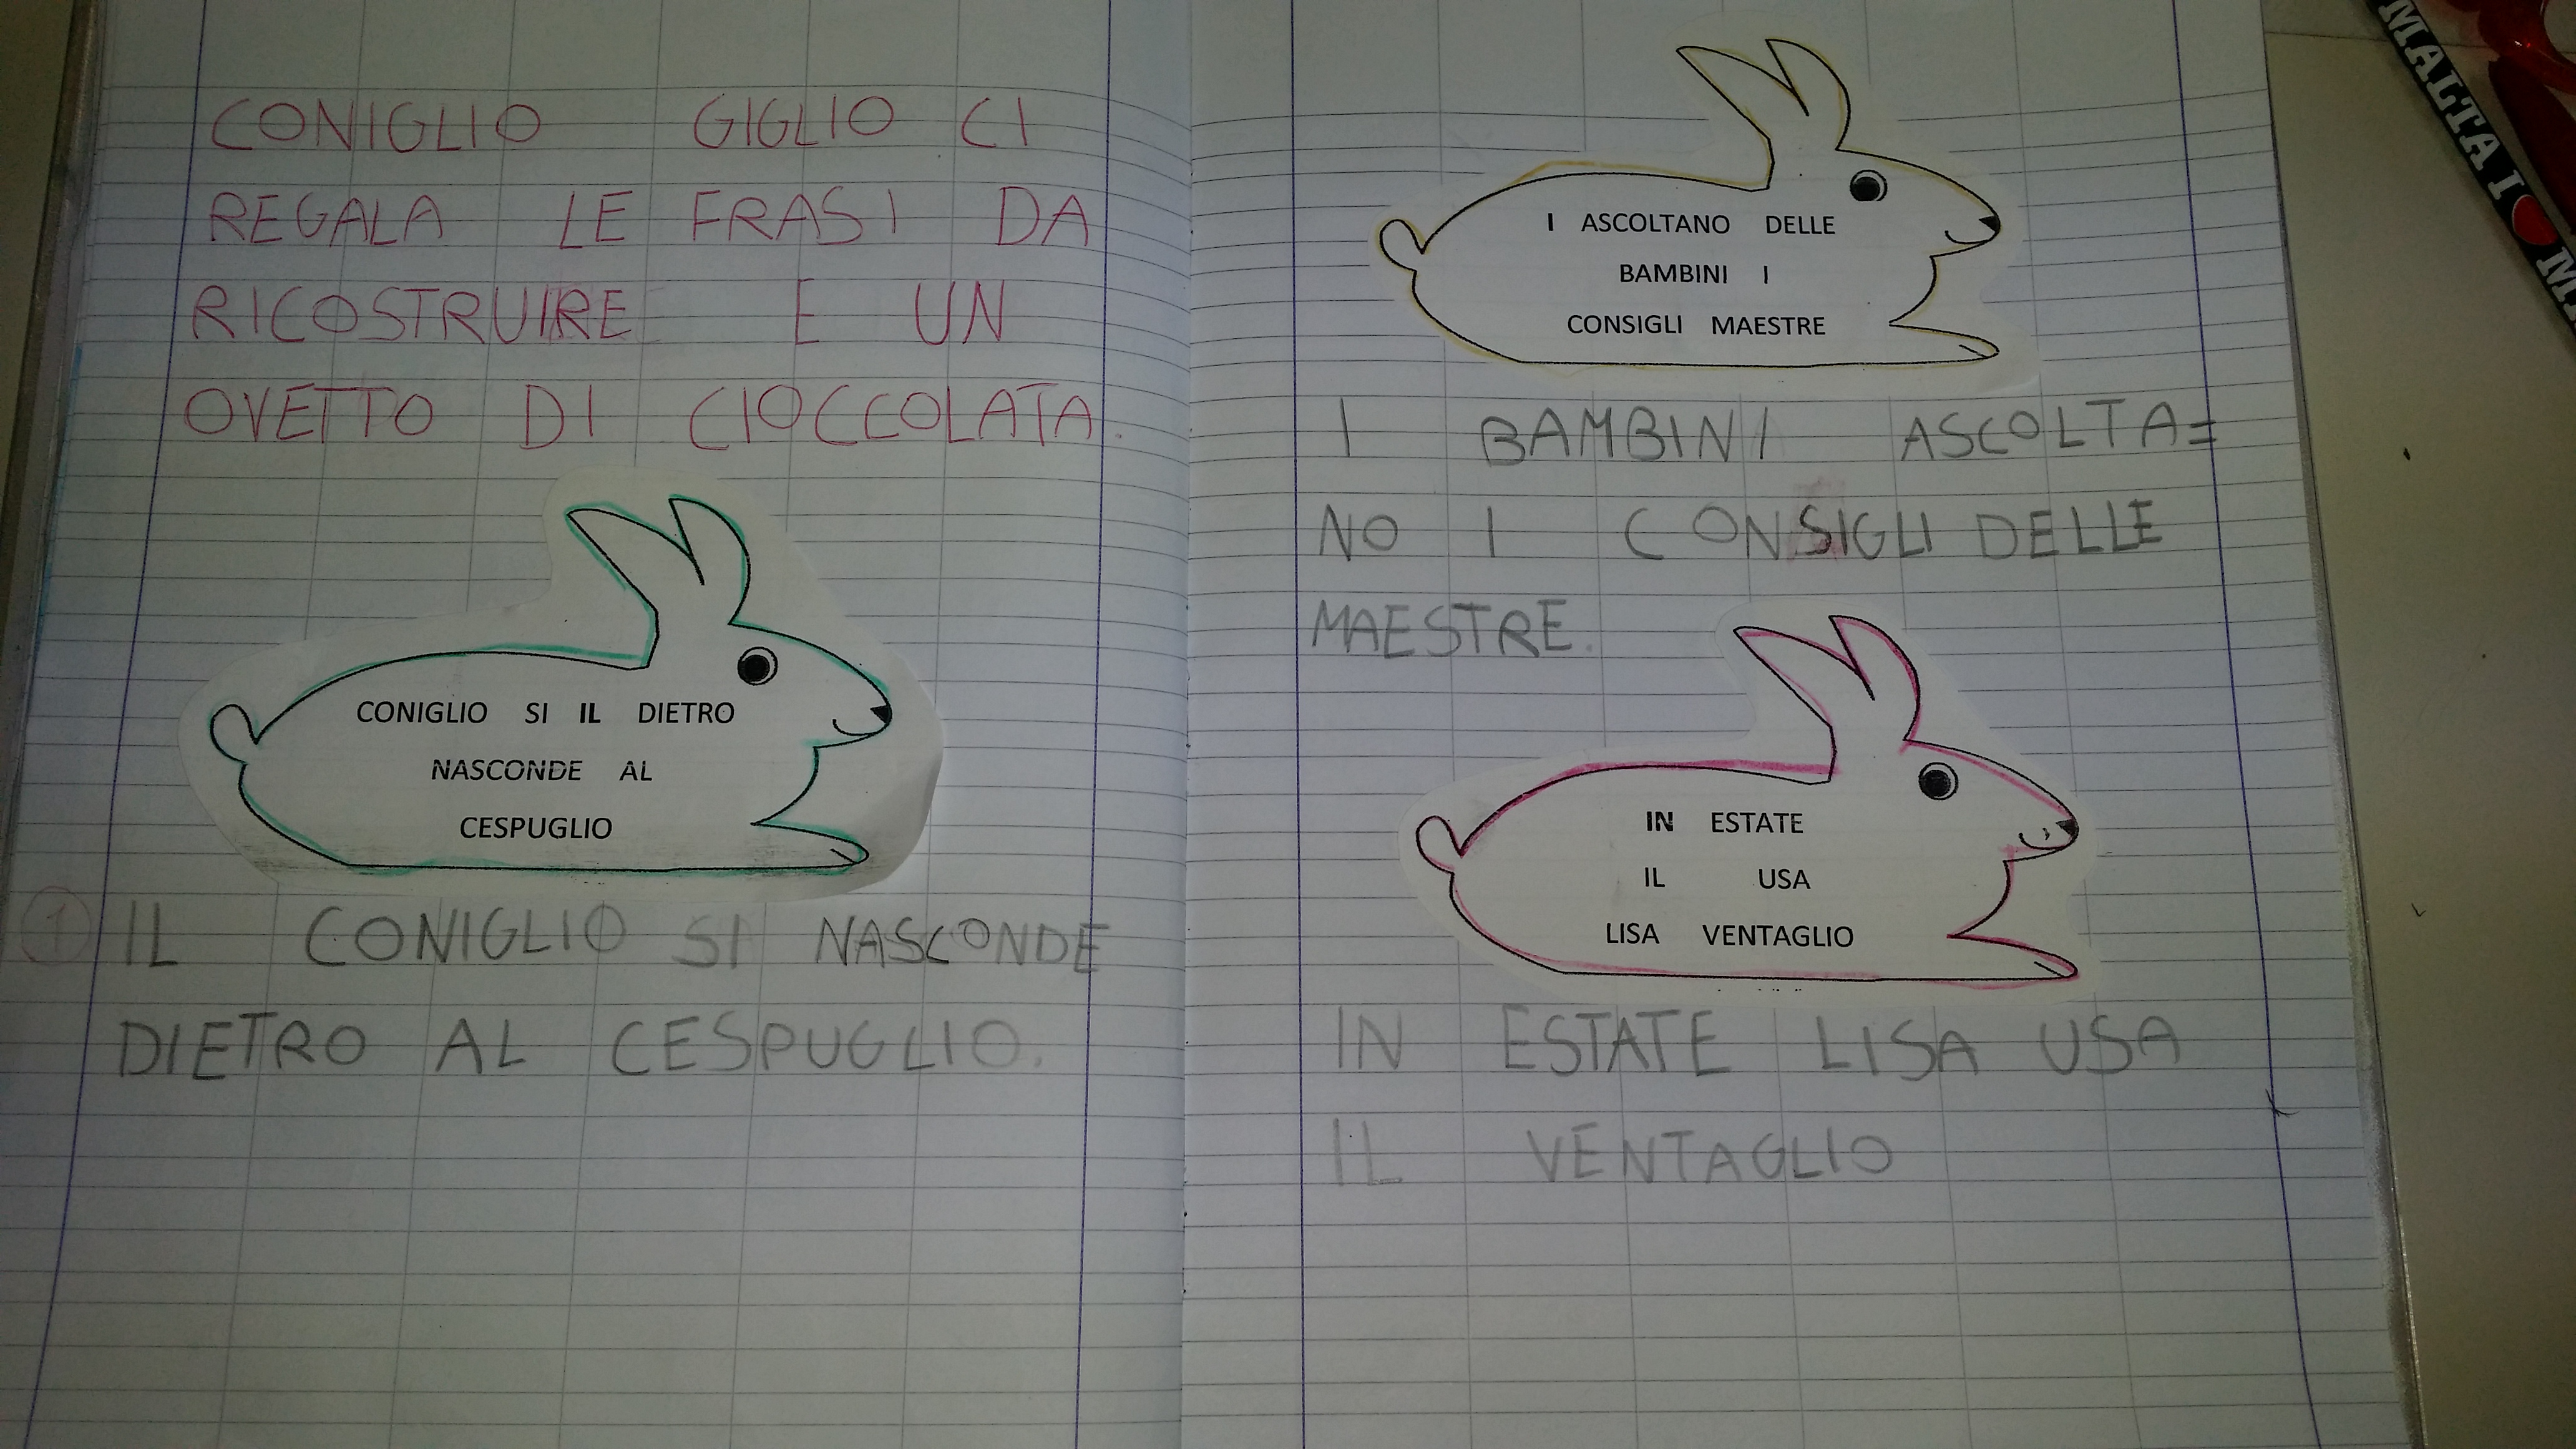 CONIGLIO GIGLIO CI
REGALA LE FRASI DA
RICOSTRUIRE E UN
OVETTO DI CIOCCOLATA.
CONIGLIO SI IL DIETRO
NASCONDE AL
CESPUGLIO
1 IL CONIGLIO SI NASCONDE
DIETRO AL CESPUGLIO.
I ASCOLTANO DELLE
BAMBINI I
CONSIGLI MAESTRE
I BAMBINI ASCOLTA=
NO I CONSIGLI DELLE
MAESTRE.
IN ESTATE
IL USA
LISA VENTAGLIO
IN ESTATE LISA USA
IL VENTAGLIO
MALTA I